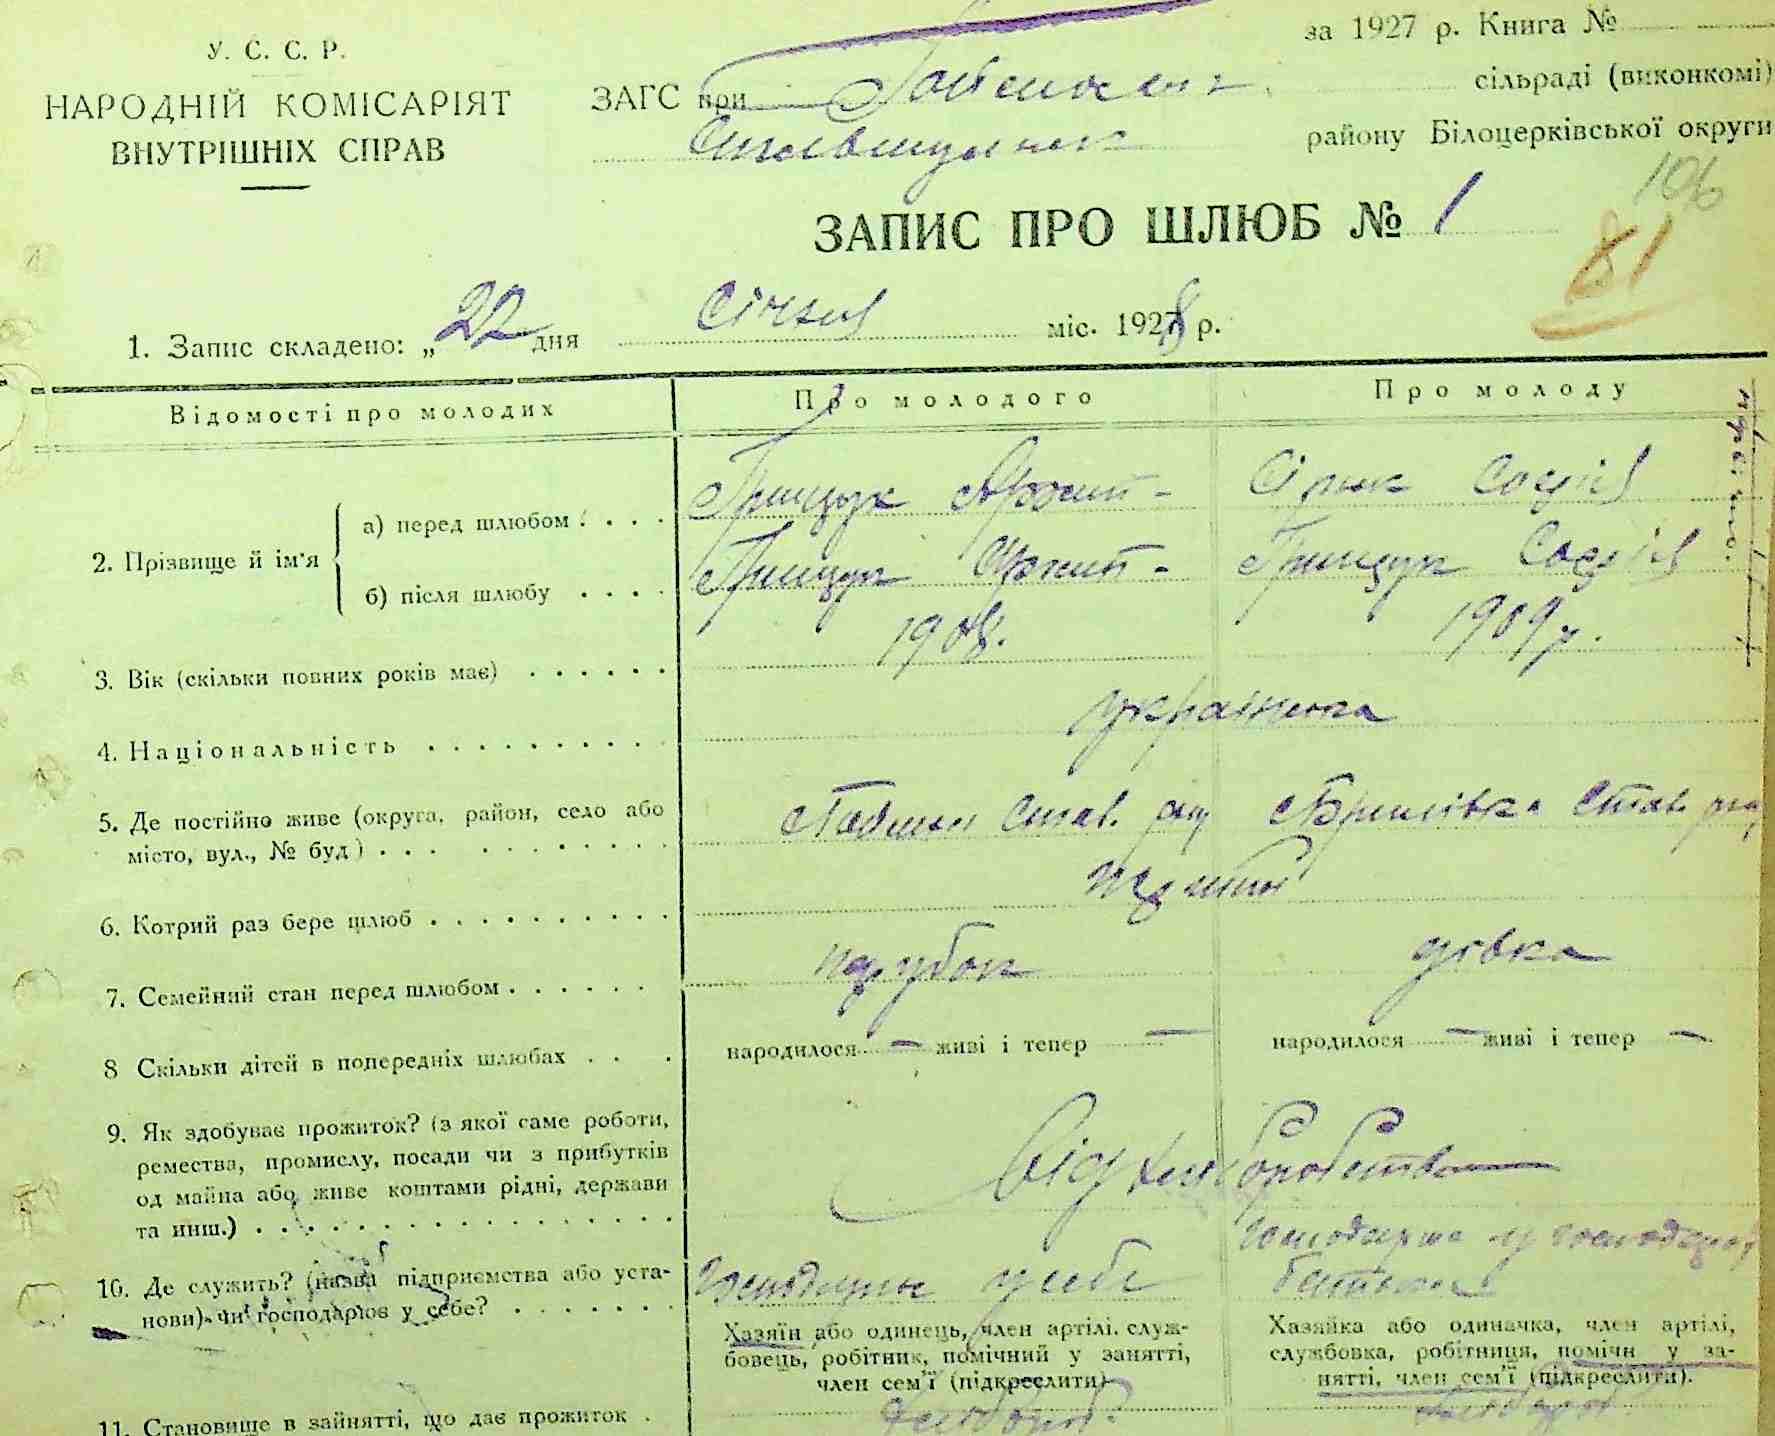 У. С. С. Р.
НАРОДНІЙ КОМІСАРІЯТ
ВНУТРІШНІХ СПРАВ
за 1927 р. Книга №
ЗАГС при сільраді (виконкомі)
району Білоцерківської округи
106
ЗАПИС ПРО ШЛЮБ № 1
81
1. Запис складено: „22 дня Січня міс. 1928 р.
Відомості про молодих
Про молодого
Про молоду
2. Прізвище й ім'я
а) перед шлюбом . . . .
Грищук Архип - Сірик Софія
б) після шлюбу . . . .
Грищук Архип - Грищук Софія
3. Вік (скільки повних років має) . . . . . .
1908. 1909 р.
4. Національність . . . . . . . . . .
українська
5. Де постійно живе (округа, район, село або
місто, вул., № буд) . . . . . . . . . . .
Став. рну Брилівка Став. рну
6. Котрий раз бере шлюб . . . . . . . . . .
первий
7. Семейний стан перед шлюбом . . . . . .
парубок дівка
8 Скільки дітей в попередніх шлюбах . . .
народилося — живі і тепер — народилося — живі і тепер —
9. Як здобуває прожиток? (з якої саме роботи,
ремества, промислу, посади чи з прибутків
од майна або живе коштами рідні, держави
та инш.) . . . . . . . . . . . . . . . .
від хліборобства
10. Де служить? (назва підприємства або уста-
нови), чи господарює у себе? . . . . . . .
господарює у себе
господарює у господарстві
батька
Хазяїн або одинець, член артілі, служ-
бовець, робітник, помічний у занятті,
член сем'ї (підкреслити)
Хазяйка або одиначка, член артілі,
службовка, робітниця, помічн у за-
нятті, член сем'ї (підкреслити).
11. Становище в зайнятті, що дає прожиток .
хлібороб.